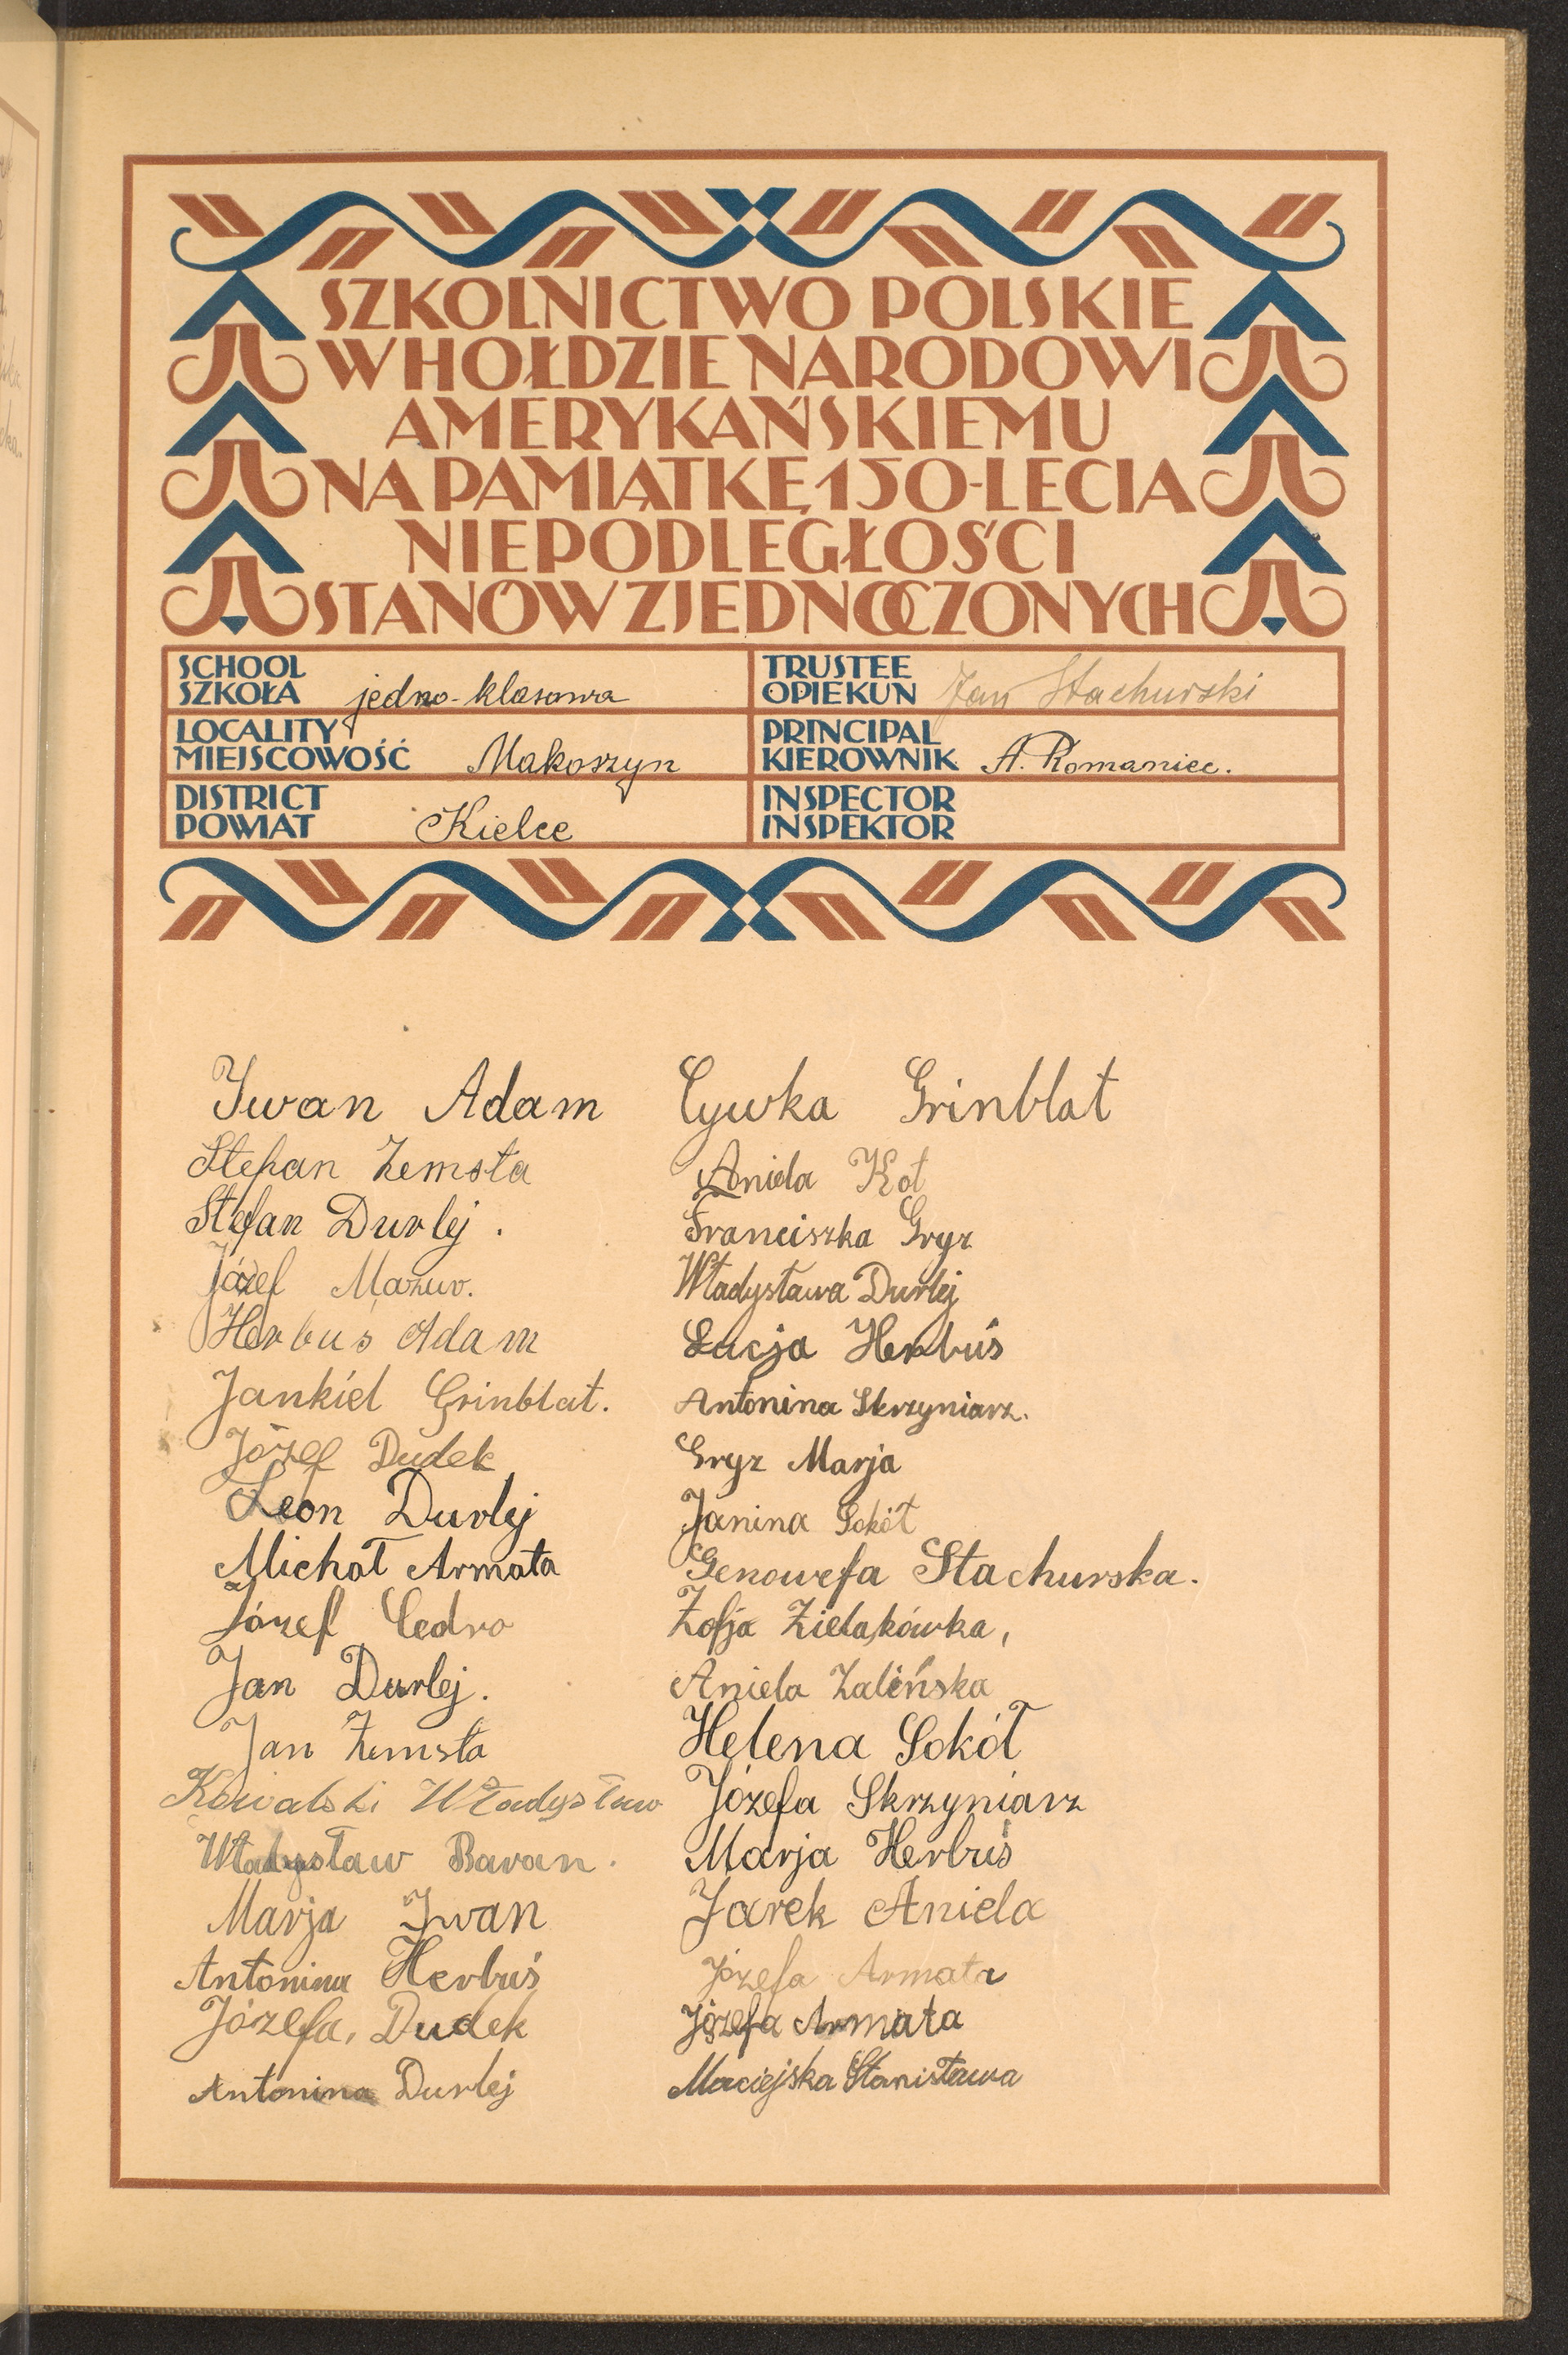 SZKOLNICTWO POLSKIE
W HOŁDZIE NARODOWI
AMERYKAŃSKIEMU
NA PAMIĄTKĘ 150-LECIA
NIEPODLEGŁOŚCI
STANÓW ZJEDNOCZONYCH
SCHOOL
SZKOŁA jedno-klasowa
TRUSTEE
OPIEKUN Jan Stachurski
LOCALITY
MIEJSCOWOŚĆ Makoszyn
PRINCIPAL
KIEROWNIK A. Romaniec.
DISTRICT
POWIAT Kielce
INSPECTOR
INSPEKTOR
Iwan Adam
Stefan Zemsta
Stefan Durlej.
Józef Mazur.
Herbus Adam
Jankiel Grinblat.
Józef Dudek
Leon Durlej
Michał Armata
Józef Cedro
Jan Durlej.
Jan Zemsta
Kowalski Władysław
Władysław Baran.
Marja Iwan
Antonina Herbuś
Józefa, Dudek
Antonina Durlej
Cywka Grinblat
Aniela Kot
Franciszka Gryz
Władysława Durlej
Łucja Herbuś
Antonina Skrzyniarz.
Gryz Marja
Janina Sokół
Genowefa Stachurska.
Zofja Zielakówka,
Aniela Zalińska
Helena Sokół
Józefa Skrzyniarz
Marja Herbuś
Jarek Aniela
Józefa Armata
Józefa Armata
Maciejska Stanisława